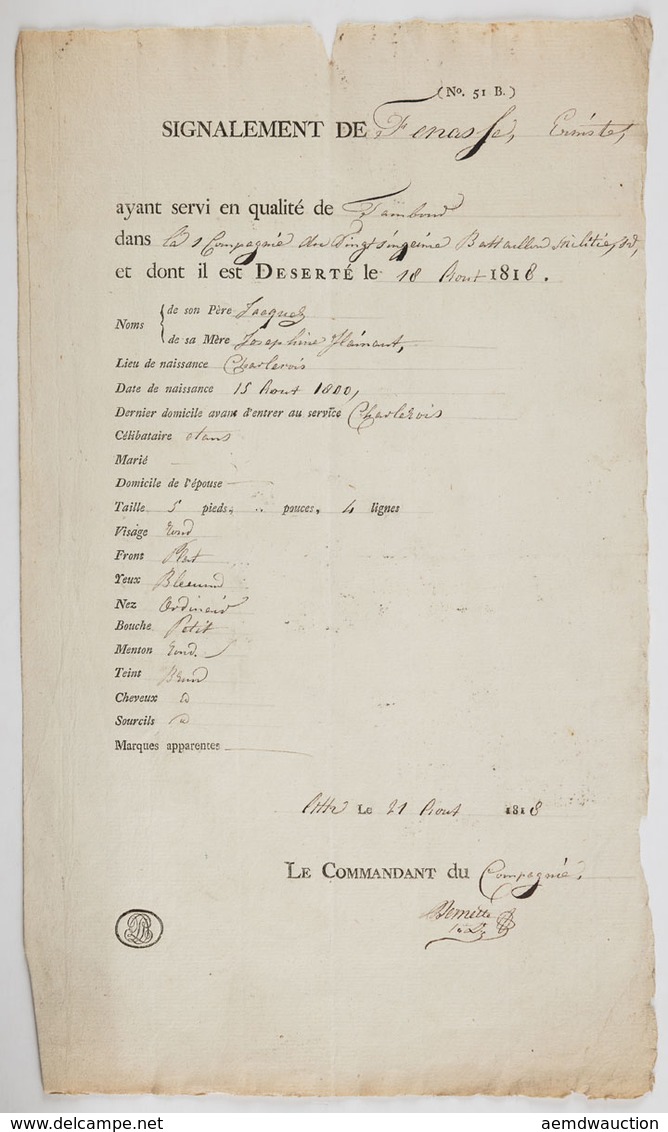 (No. 51 B.)
SIGNALEMENT DE Fenasse,
ayant servi en qualité de Tambour
dans la 1 Compagnie du Battaillon
et dont il est DESERTÉ le 18 Aout 1818.
Noms
de son Père Jacques
de sa Mère Josephine
Lieu de naissance Charlerois
Date de naissance 15 Aout 1800,
Dernier domicile avant d'entrer au service Charlerois
Célibataire
Marié
Domicile de l'épouse
Taille 5 pieds, pouces, 4 lignes
Visage rond
Front Plat
Yeux
Nez
Bouche Petit
Menton rond.
Teint Brun
Cheveux
Sourcils
Marques apparentes
Le 21 Aout 1818
LE COMMANDANT du Compagnie,
www.delcampe.net
aemdwauction